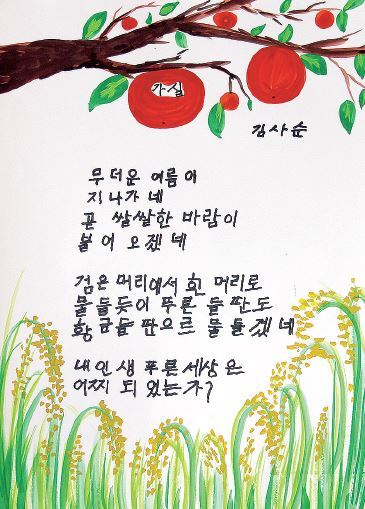 가실
김사순
무더운 여름이
지나가네
곧 쌉쌀한 바람이
불어 오겠네
검은 머리에서 흰 머리로
물들듯이 푸른 들판도
황금들판으르 물들겠네
내 인생 푸른세상은
어찌 되었는가?